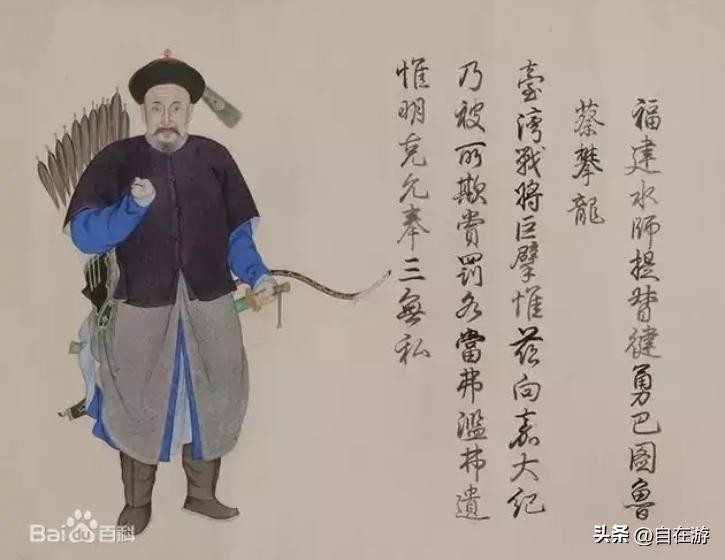 福建水師提督健勇巴圖魯
蔡攀龍
臺灣戰將巨擘惟茲向嘉大紀
乃被所欺賞罰各當弗濫弗遺
惟明克允奉三無私
Bai百科
头条 @自在游